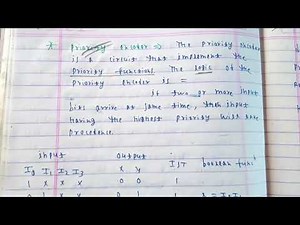 * Priority Encoder ⇒ The Priority encoder
is a circuit that implement the
Priority function. The logic of the
Priority Encoder is =
if two or more input
bits arrive at same time, then input
having the highest Priority will take
Precedence.
input output
I0 I1 I2 I3 x y IST boolean funcn
1 x x x 0 0 1
0 1 x x 0 1 1